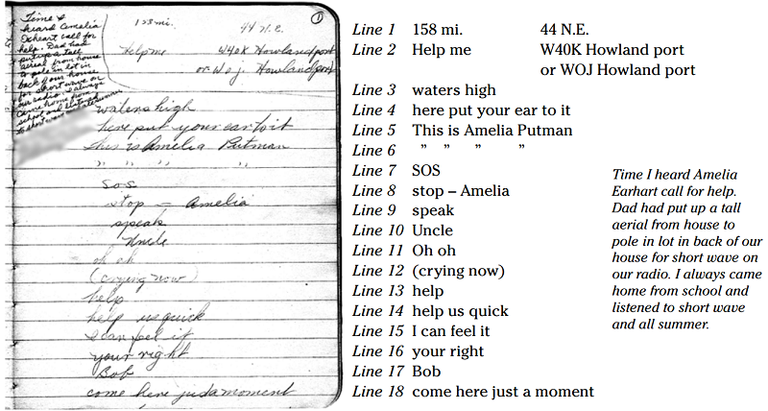 ①
Time I
heard Amelia
call for
help. Dad had
put up a tall
aerial from house
to pole in lot in
back from house
for short wave on
our radio I always
came home from
school and
to short wave
mi. 44 N.E.
Help me W40K Howland port
or WOJ. Howland port
waters high
here put your ear to it
This is Amelia Putman
" " " "
SOS
stop – Amelia
speak
Uncle
oh oh
(crying now)
help
help us quick
I can feel it
your right
Bob
come here just a moment
Line 1 158 mi. 44 N.E.
Line 2 Help me W40K Howland port
or WOJ Howland port
Line 3 waters high
Line 4 here put your ear to it
Line 5 This is Amelia Putman
Line 6 ” ” ” ”
Line 7 SOS
Line 8 stop – Amelia
Line 9 speak
Line 10 Uncle
Line 11 Oh oh
Line 12 (crying now)
Line 13 help
Line 14 help us quick
Line 15 I can feel it
Line 16 your right
Line 17 Bob
Line 18 come here just a moment
Time I heard Amelia
Earhart call for help.
Dad had put up a tall
aerial from house to
pole in lot in back of our
house for short wave on
our radio. I always came
home from school and
listened to short wave
and all summer.